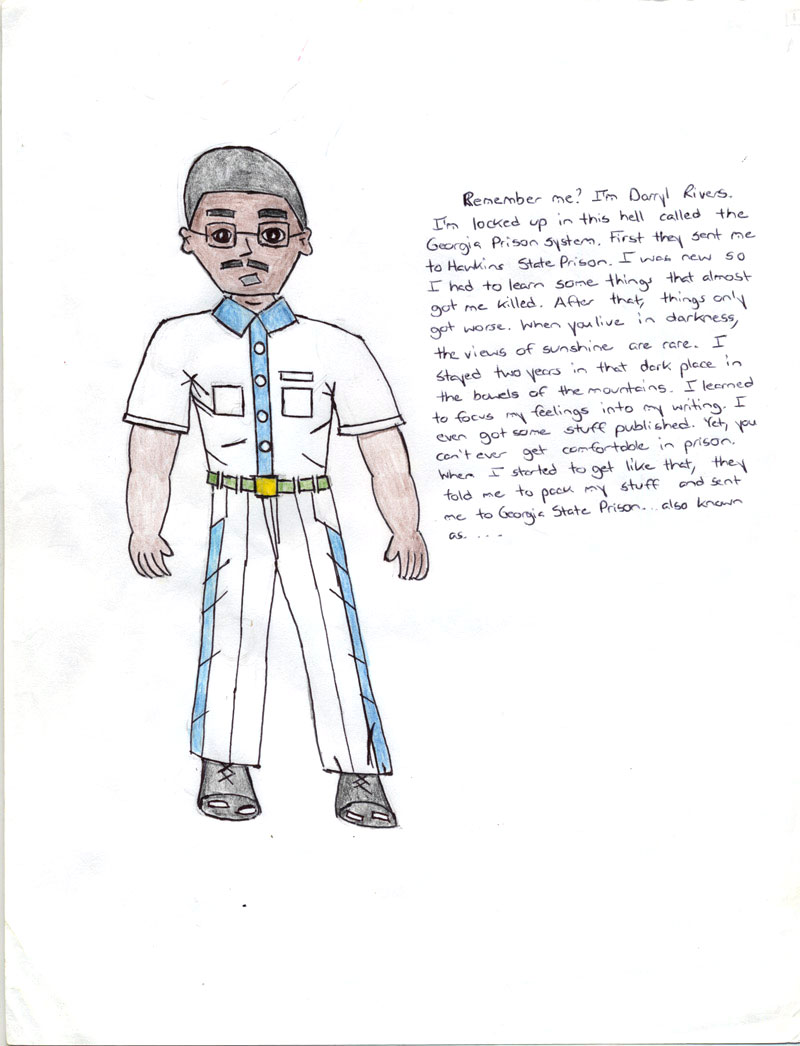 Remember me? I'm Darryl Rivers.
I'm locked up in this hell called the
Georgia Prison System. First they sent me
to Hawkins State Prison. I was new so
I had to learn some things that almost
got me killed. After that, things only
got worse. When you live in darkness,
the views of sunshine are rare. I
stayed two years in that dark place in
the bowels of the mountains. I learned
to focus my feelings into my writing. I
even got some stuff published. Yet, you
can't ever get comfortable in prison.
When I started to get like that, they
told me to pack my stuff and sent
me to Georgia State Prison... also known
as....